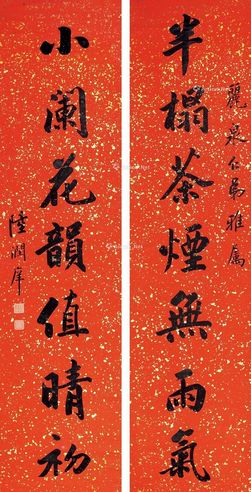 麗泉仁弟雅属
半榻茶煙無雨氣
小阑花韻值晴初
陸潤庠